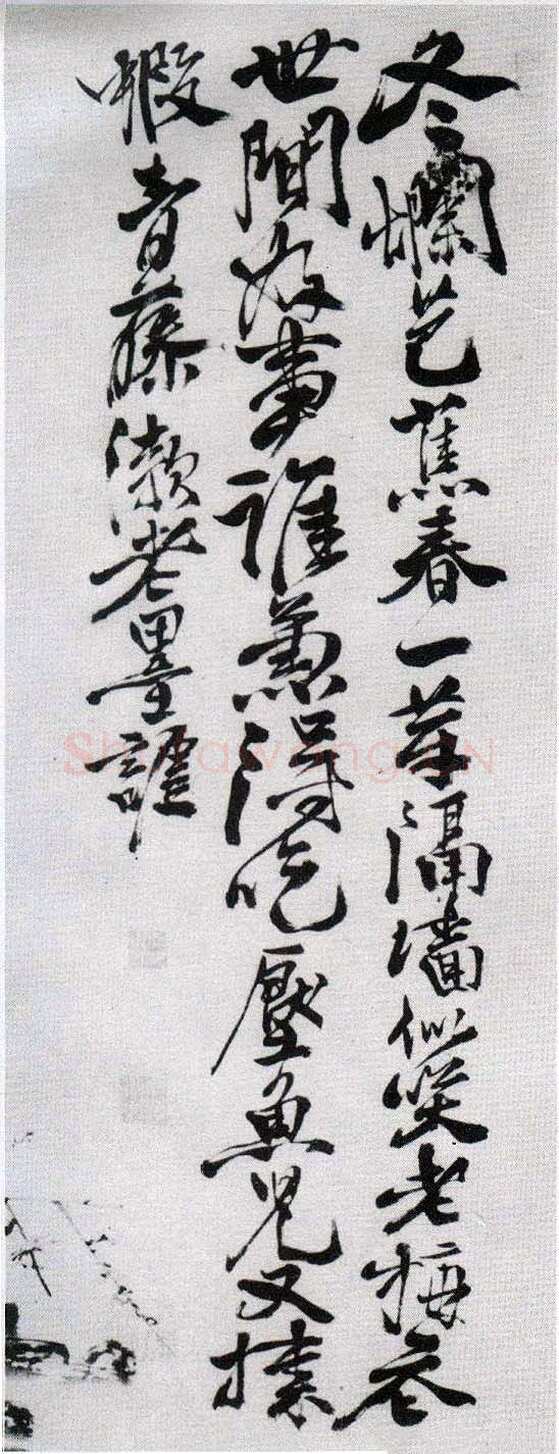 冬爛芭蕉春一芽隔牆似笑老梅衾
世間好事誰兼得吃壓魚兒又揀
蝦青藤漱老墨謔
shufawang.CN